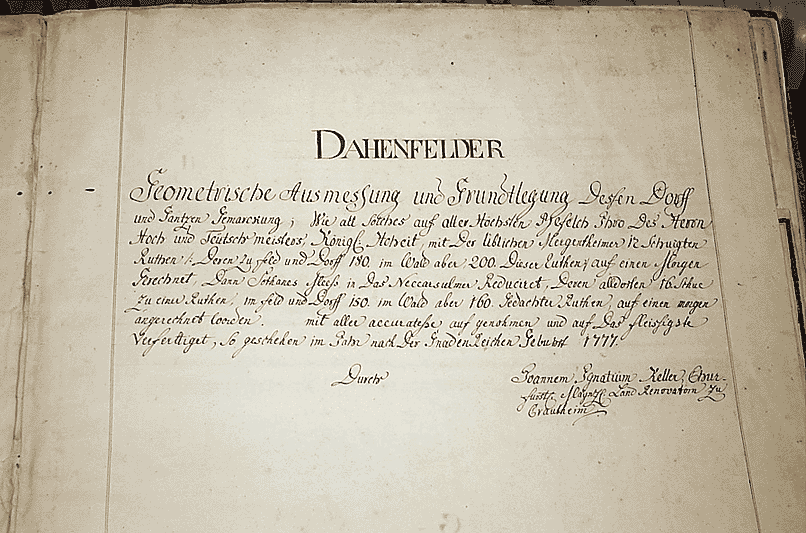 DAHENFELDER
Geometrische Ausmessung und Grundtlegung Dessen Dorff
und Gantzen Gemarckung; Wie all solches auf aller Höchsten Befelch Ihro Des Herrn
Hoch und Teütschmeisters, Königl: Hoheit, mit Der üblichen Mergentheimer 12 Schuigten
Ruthen /: Deren Zu feld und Dorff 180. im Wald aber 200. Dieser Ruthen, auf einen Morgen
Gerechnet, Dann Sothanes Mees in Das Neccarsulmer Reduciret, Deren alldorten 16. Schue
Zu einer Ruthen, im feld und Dorff 150. im Wald aber 160. gedachter Ruthen, auf einen morgen
angerechnet worden. mit aller accuratesse auf genohmen und auf Das fleissigste
Verfertiget, So geschehen im Jahr nach Der Gnadenreichen Geburt 1777.
Durch
Joannem Ignatium Keller, Chur-
fürstl: Maynzl: Land Renovatorn Zu
Crautheim